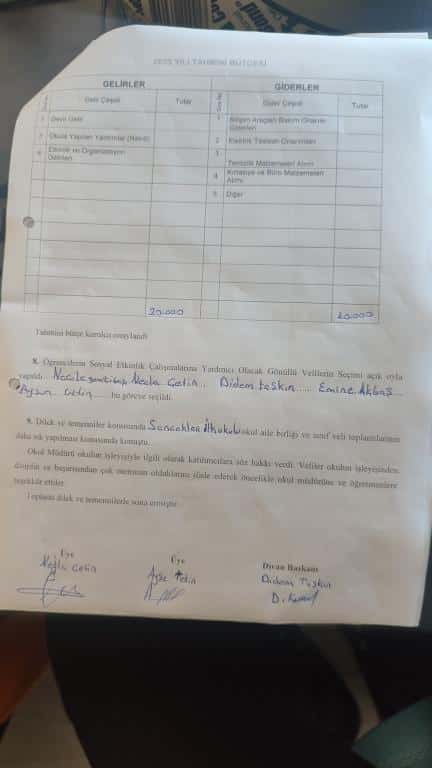 YILI TAHMİNİ BÜTÇESİ
GELİRLER GİDERLER
Gelir Çeşidi Tutar Gider Çeşidi Tutar
1 Devir Gelir 1 Bilişim Araçları Bakım Onarım Giderleri
Okula Yapılan Yardımlar (Nakdi) 2 Elektrik Tesisatı Onarımları
Etkinlik ve Organizasyon Gelirleri 3 Temizlik Malzemeleri Alımı
4 Kırtasiye ve Büro Malzemeleri Alımı
5 Diğer
20.000 20.000
Tahmini bütçe kurulca onaylandı
8. Öğrencilerin Sosyal Etkinlik Çalışmalarına Yardımcı Olacak Gönüllü Velilerin Seçimi açık oyla
yapıldı. Necla Çetin Didem Teskin Emine Akbaş
Aysun Çetin bu göreve seçildi.
9. Dilek ve temenniler konusunda İlkokulu okul aile birliği ve sınıf veli toplantılarının
daha sık yapılması konusunda konuştu.
Okul Müdürü okulun işleyişiyle ilgili olarak katılımcılara söz hakkı verdi. Veliler okulun işleyişinden,
disiplin ve başarısından çok memnun olduklarını ifade ederek öncelikle okul müdürüne ve öğretmenlere
teşekkür ettiler.
Toplantı dilek ve temennilerle sona ermiştir.
Üye Üye Divan Başkanı
Çetin Ayşe Tekin Didem Teskin